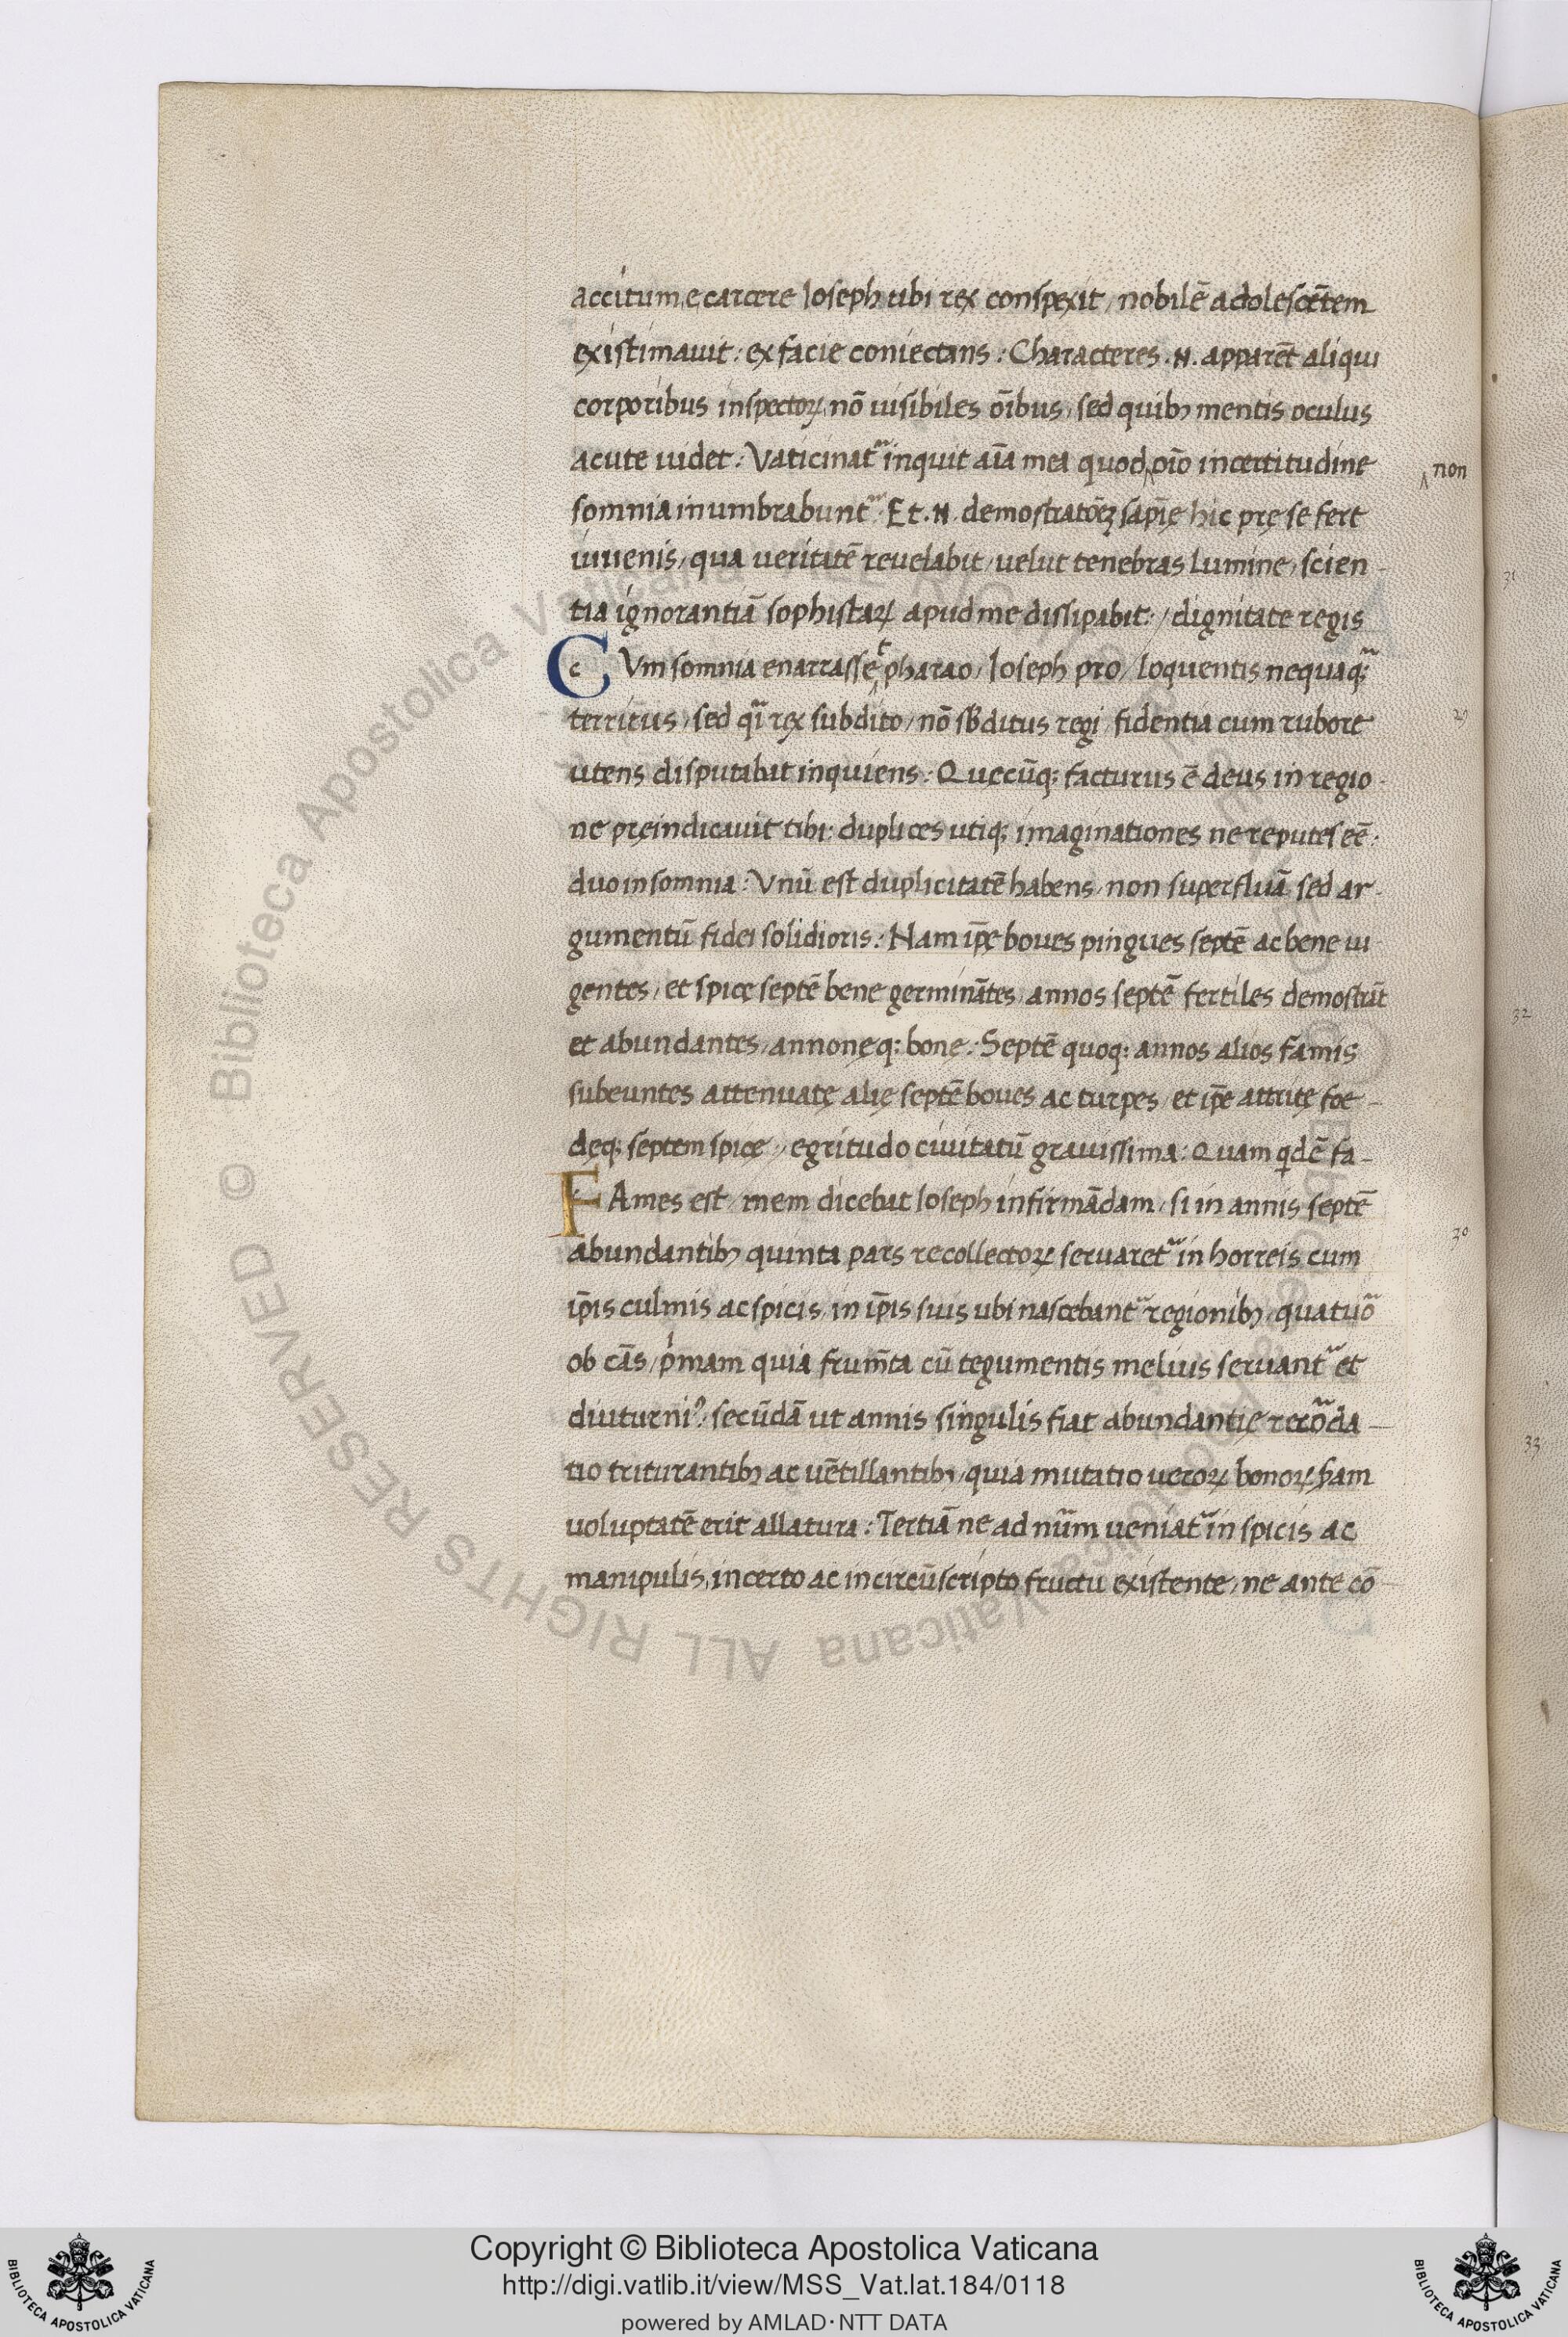 accitum, e carcere Ioseph ubi rex conspexit, nobilē adolescētem
existimauit: ex facie coniectans: Characteres .N. apparēt aliqui
corporibus inspectoꝝ, nō uisibiles oībus, sed quibꝫ mentis oculus
acute uidet: Vaticinat᷑ inquit aīa mea quod oīo incertitudine
non
somnia inumbrabunt᷑: Et .N. demostratōēꝫ sapīę hic prę se fert
iuuenis, qua veritatē reuelabit, uelut tenebras lumine, scien-
tia ignorantiā sophistaꝝ apud me dissipabit: / dignitate regis
CVm somnia enarrasset pharao, Ioseph pro / loquentis nequaq̃;
territus, sed qͣi rex subdito, nō sb̄ditus regi, fidentia cum rubore
utens disputabat inquiens: Quęcūq; facturus ē deus in regio-
ne pręindicauit tibi: duplices utiq; imaginationes ne reputes eē:
duo insomnia: Vnū est duplicitatē habens, non superfluā sed ar-
gumentū fidei solidioris: Nam ip̄ę boues pingues septē ac bene ui-
gentes, et spicę septē bene germināntes, annos septē fertiles demostrāt
et abundantes, annonęq; bonę: Septē quoq; annos alios famis
subeuntes attenuatę alię septē boues ac turpes, et ip̄e attritę foe-
dęq; septem spicę, / egritudo ciuitatū grauissima: Quam qͥdē fa-
FAmes est / mem dicebat Ioseph infirmādam, si in annis septē
abundantibꝫ quinta pars recollectoꝝ seruaret᷑ in horreis cum
ip̄is culmis ac spicis, in ip̄is suis ubi nascebant᷑ regionibꝫ, quatuõ
ob cās, pͥmam quia frum̄ta cū tegumentis melius seruant᷑ et
diuturniꝰ, secūdā ut annis singulis fiat abundantię recõda-
tio triturantibꝫ ac uētillantibꝫ, quia mutatio ueroꝝ bonoꝝ
uoluptatē erit allatura: Tertiā ne ad nūm ueniat᷑ in spicis ac
manipulis, incerto ac incircūscripto fructu existente, ne ante cō-
31
29
32
30
33
Copyright © Biblioteca Apostolica Vaticana
http://digi.vatlib.it/view/MSS_Vat.lat.184/0118
powered by AMLAD·NTT DATA
BIBLIOTECA APOSTOLICA VATICANA
BIBLIOTECA APOSTOLICA VATICANA